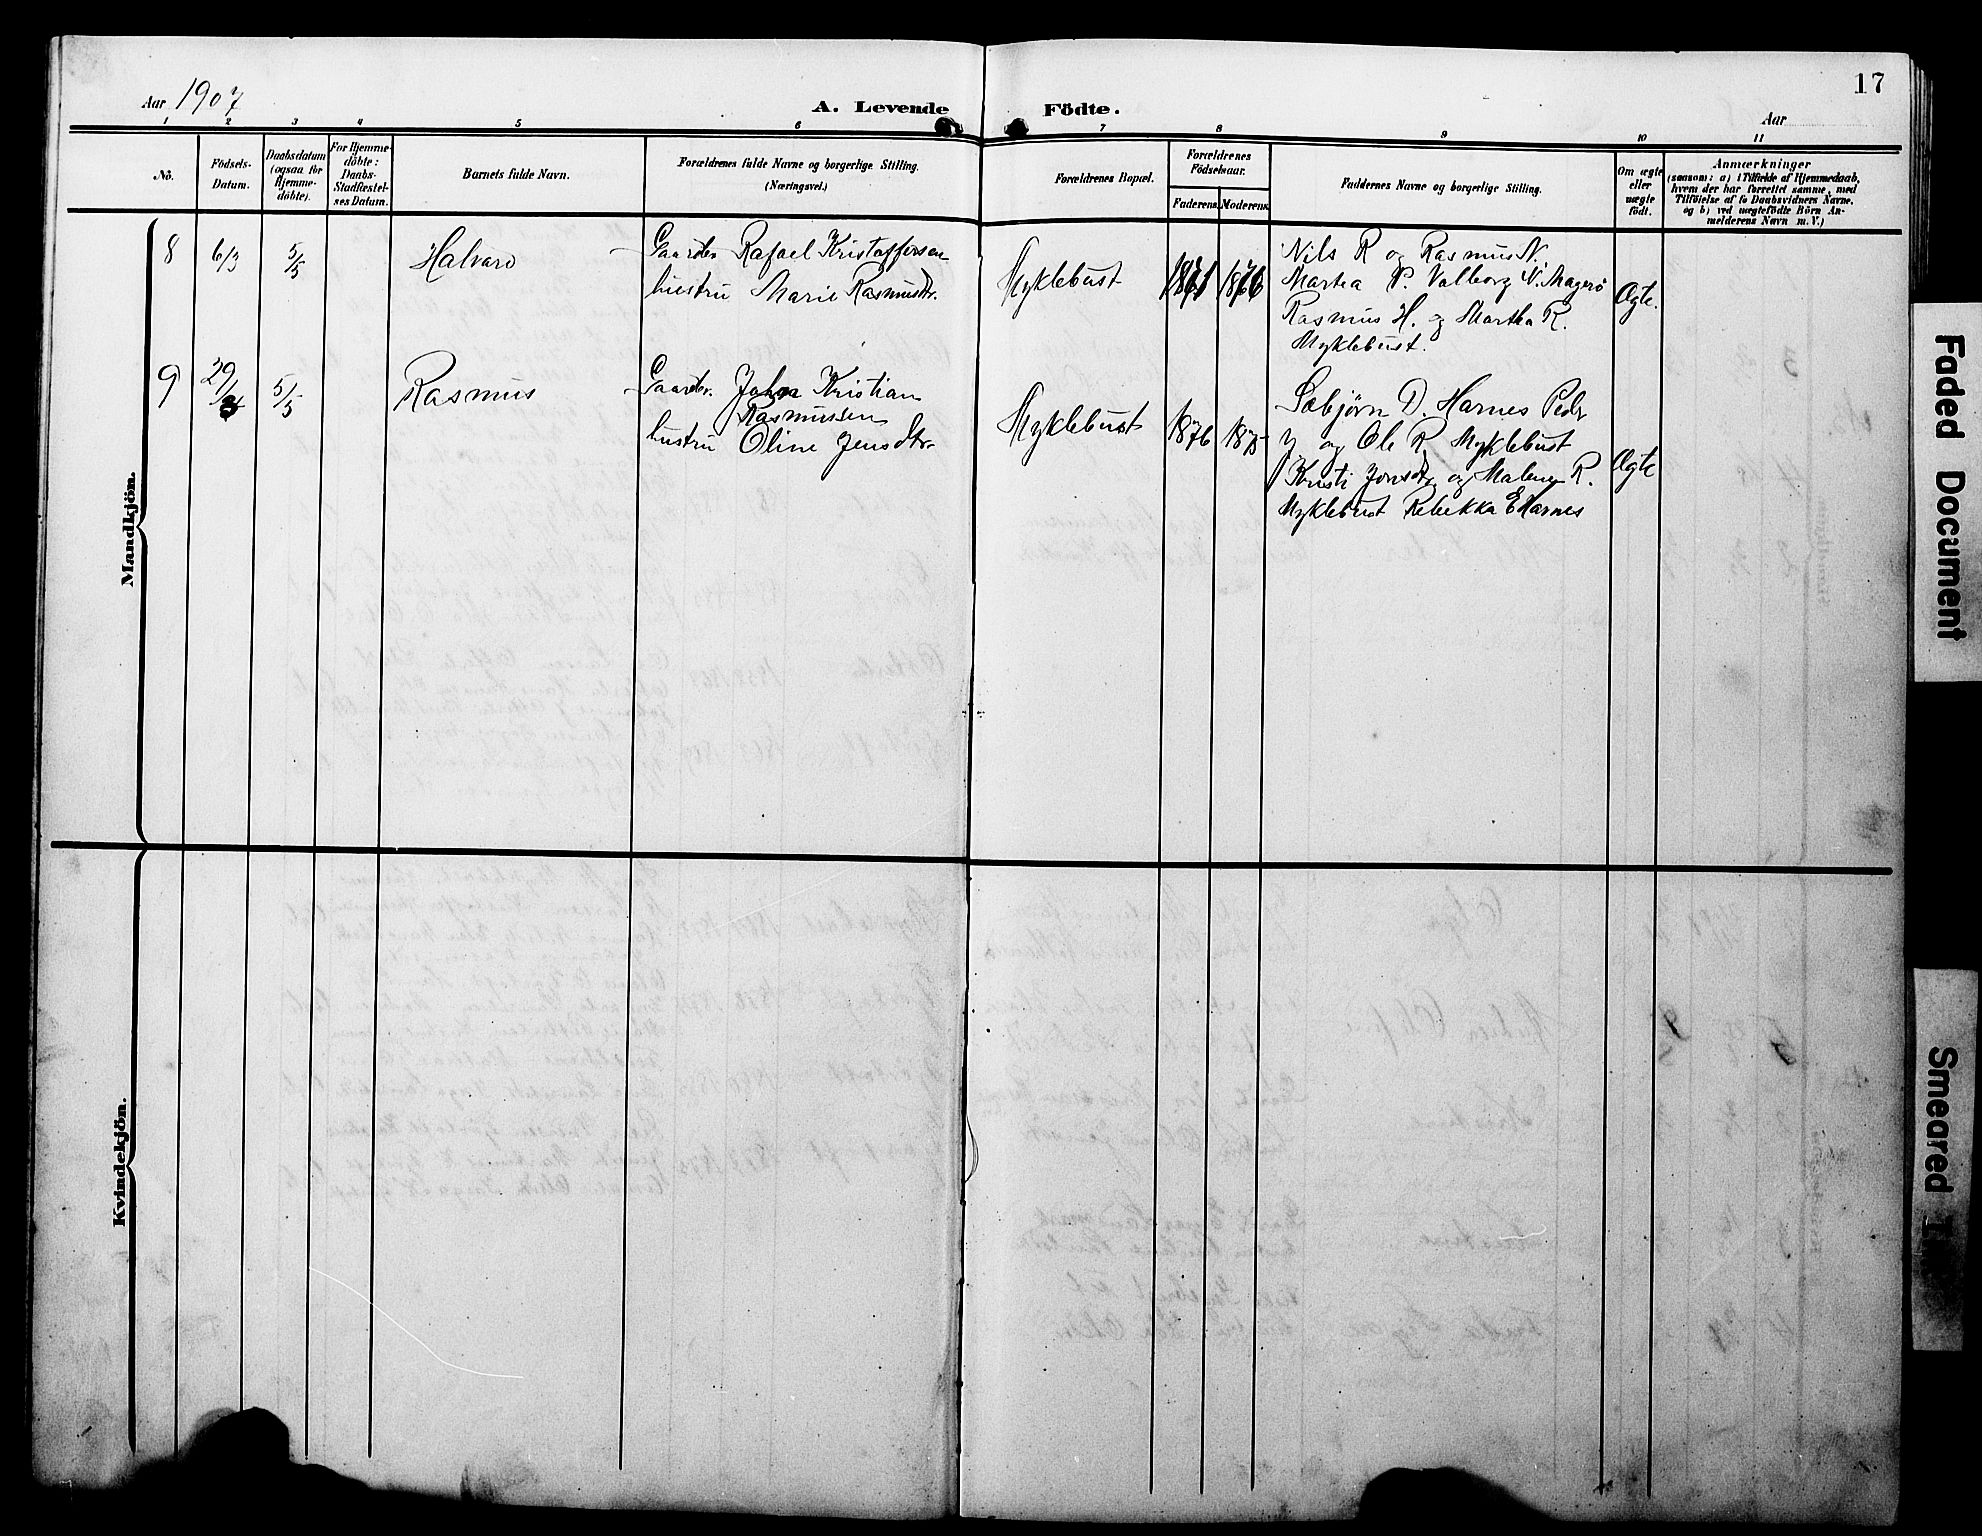 17
Aar 1907
A. Levende Födte.
Aar
1 2 3 4 5 6 7 8 9 10 11
Nö.
Födsels-
Datum.
Daabsdatum
(ogsaa for
Hjemme-
döbte).
For Hjemme-
döbte:
Daabs-
Stadfæstel-
ses Datum.
Barnets fulde Navn.
Forældrenes fulde Navne og borgerlige Stilling.
(Næringsvei.)
Forældrenes Bopæl.
Forældrenes
Födselsaar.
Faderens. Moderens.
Faddernes Navne og borgerlige Stilling.
Om ægte
eller
uægte
födt.
Anmærkninger
(saasom: a) i Tilfælde af Hjemmedaab,
hvem der har forrettet samme, med
Tilföielse af to Daabsvidners Navne,
og b) ved uægtefödte Börn An-
melderens Navn m. V.)
Mandkjön.
8 6/3 5/5 Halvard
Gaardbr Rafael Kristoffersen
hustru Marie Rasmusdtr.
Myklebust
Nils R og Rasmus N.
Martea P. Valborg N. Magerö
Rasmus H. og Martha R.
Myklebust.
Ægte.
9 29/3 5/5 Rasmus
Gaardbr. Johan Kristian
Rasmussen
hustru Oline Jensdtr.
Myklebust
1876 1875
Sæbjørn D. Harnes Peder
J. og Ole R. Myklebust
Kristi Jonsdtr og Malene R.
Myklebust Rebekka E Harnes
Ægte
Kvindekjön.
Faded Document
Smeared